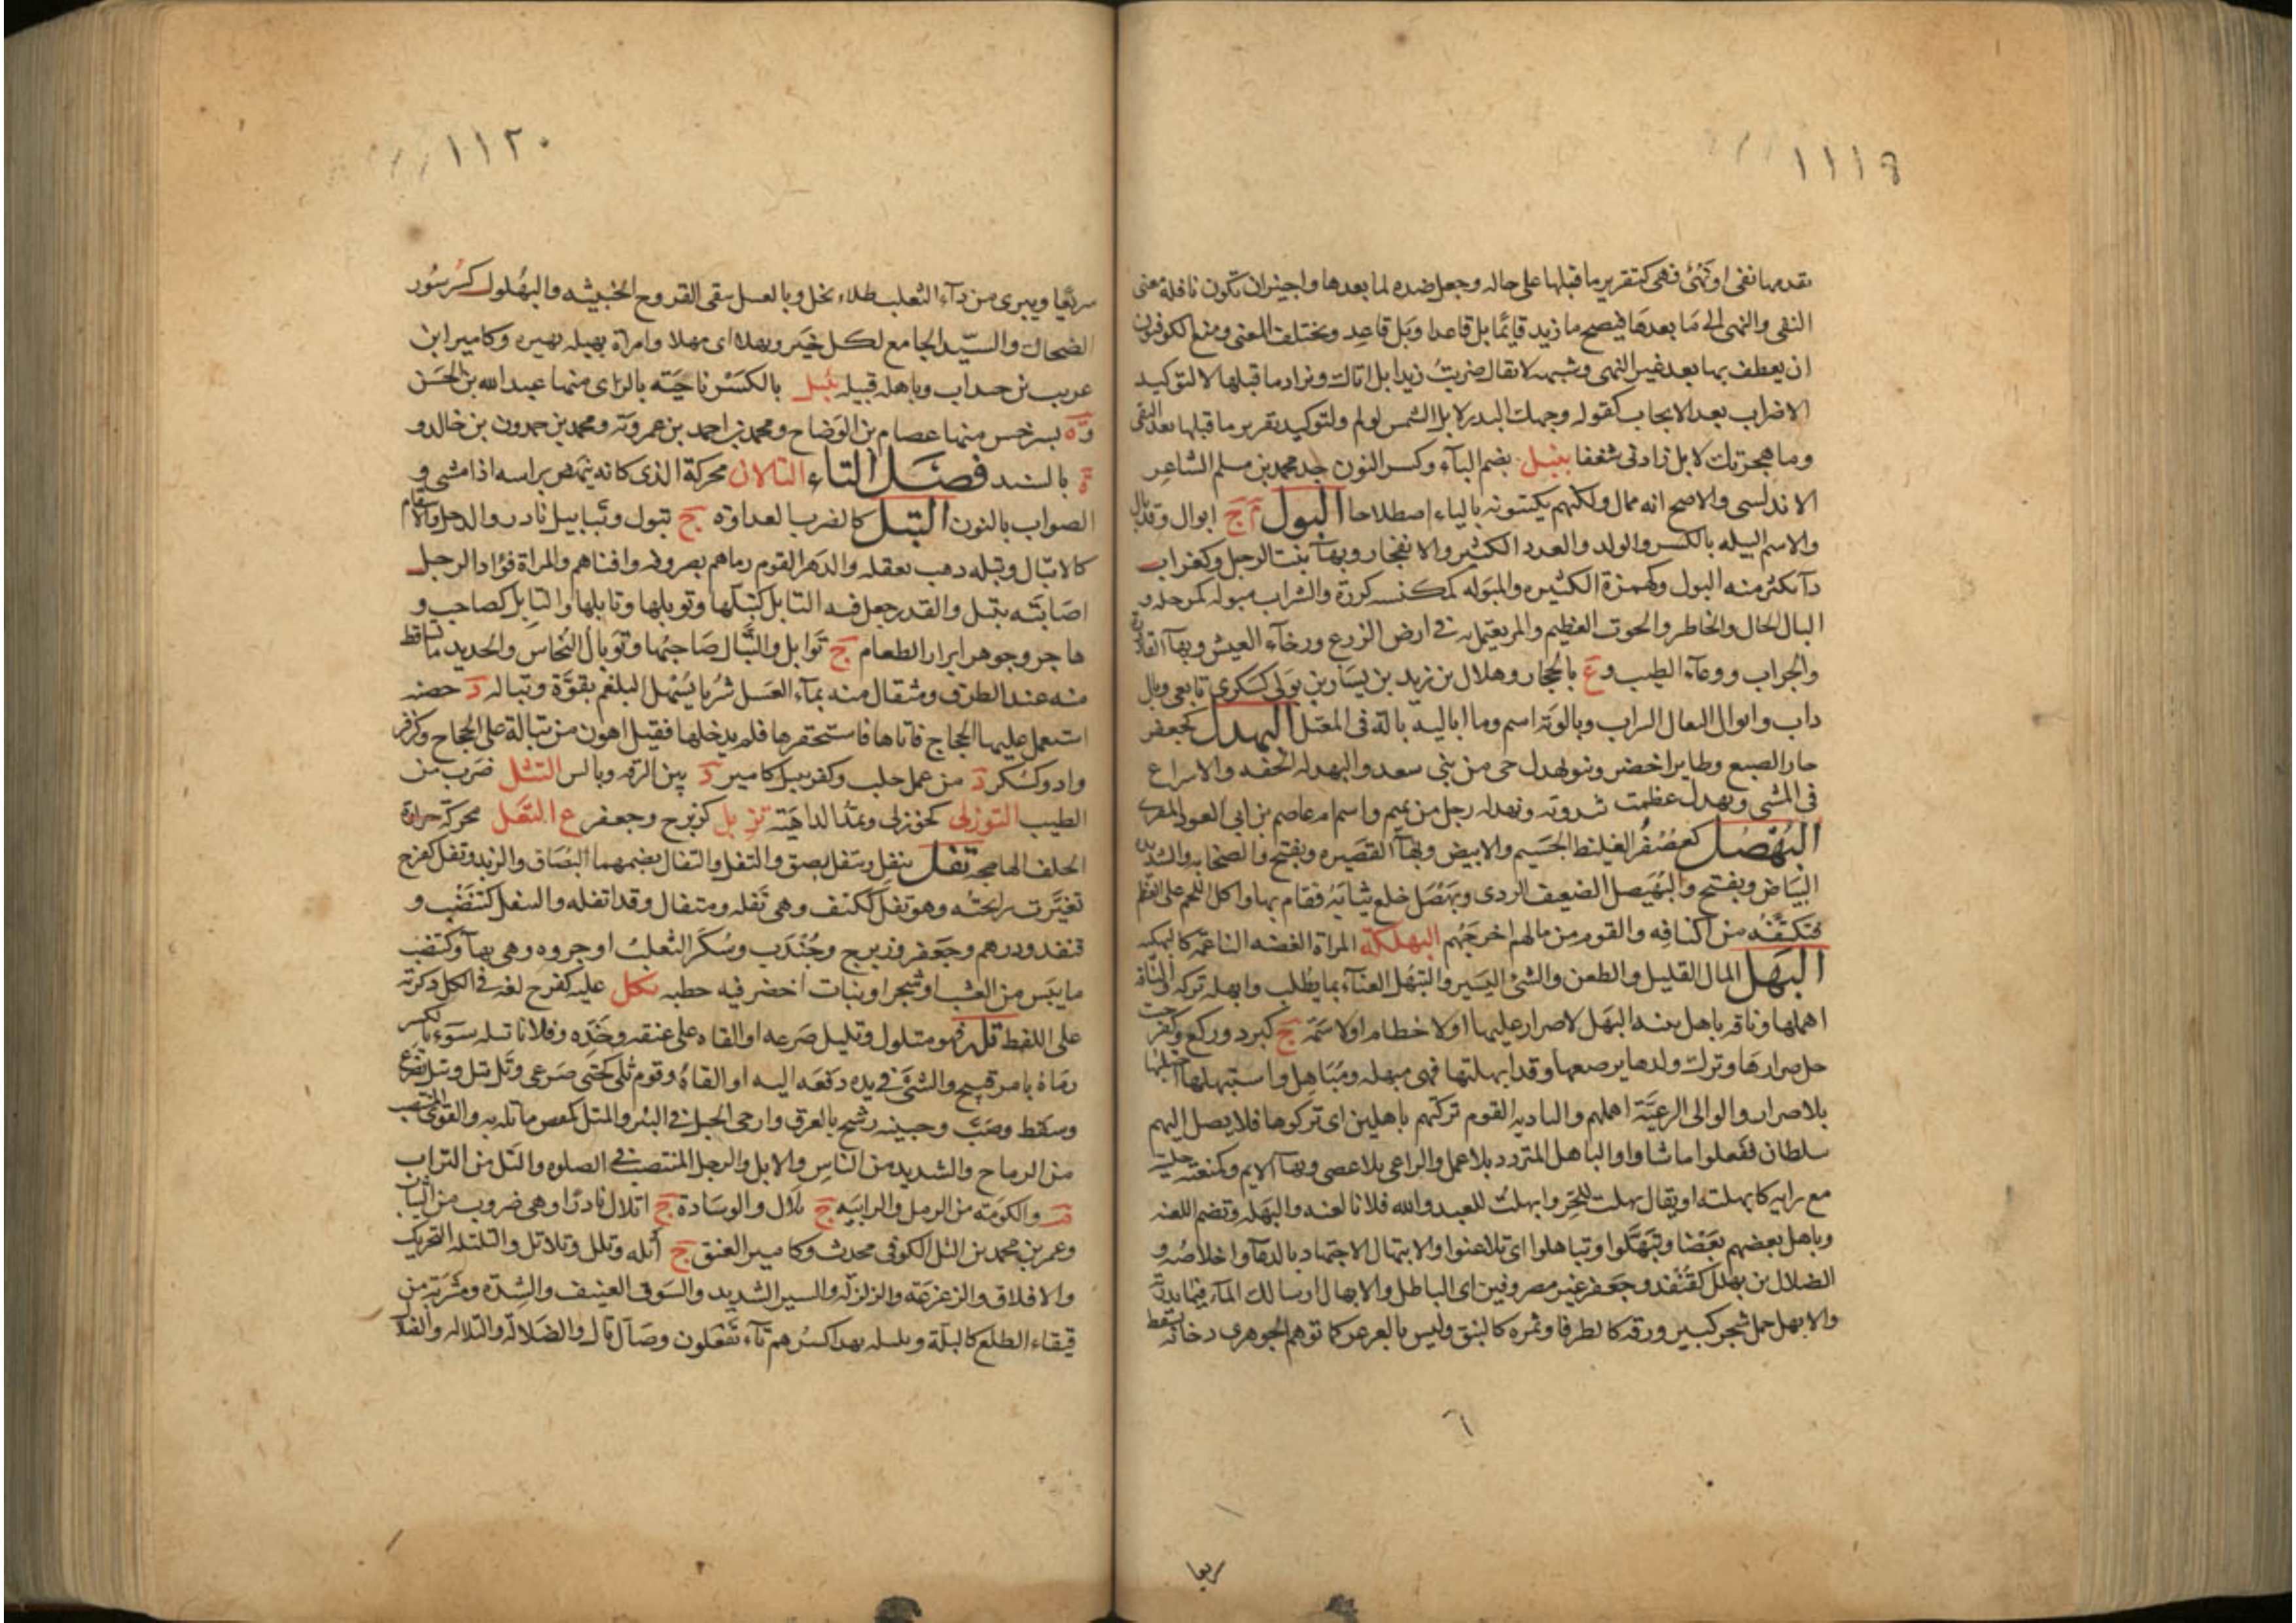 ١١١٩
تقدمها نفى او نهى فهى كتقرير ما قبلها على حاله وجعل ضده لما بعدها واجيز ان تكون ناقلة معنى
النفى والنهى الى ما بعدها فيصح ما زيد قائما بل قاعدا وبل قاعد ويختلف المعنى ومنع الكوفيون
ان يعطف بها بعد غير النهى وشبهه لا يقال ضربت زيدا بل اياك ويزاد ما قبلها لا لتوكيد
الاضراب بعد الايجاب كقوله وجهك البدر لا بل الشمس لو لم ولتوكيد تقرير ما قبلها بعد النفى
وما هجرتك لا بل زادنى شغفا بنبل بضم الباء وكسر النون جد محمد بن مسلم الشاعر
الاندلسى والاصح انه ممال ولكنهم يكتبونه بالياء اصطلاحا البول م ج ابوال وقد بال
والاسم البيله بالكسر والولد والعدد الكثير والانفجار وبهاء بنت الرجل وكغراب
داء يكثر منه البول وكهمزة الكثيره والمبوله كمكنسه كوزة والشراب مبوله كمرحله و
البال الحال والخاطر والحوت العظيم والمر يعتمل به فى ارض الزرع ورخاء العيش وبهاء القارورة
والجراب ووعاء الطيب وع بالحجاز وهلال بن زيد بن يسار بن بولى كسكرى تابعى وبال
ذاب وابوال البغال السراب وبالويه اسم وما اباليه بالة فى المعتل البهدل كجعفر
جار الضبع وطاير اخضر وبنو بهدل حى من بنى سعد والبهدله الخفه والاسراع
فى المشى وبهدل عظمت ثندوته وبهدله رجل من تميم واسم ام عاصم بن ابى النجود المقرى
البهصل كعصفر الغليظ الجسيم والابيض وبهاء القصيره ويفتح والصخابه والشديده
البياض ويفتح والبهيصل الضعيف الردى وبهصل خلع ثيابه فقام بها واكل اللحم على العظم
فتكنفه من اكنافه والقوم من مالهم اخرجهم البهلكة المراة الغضه الناعمه كالبهكله
البهل المال القليل والطعن والشئ اليسير والتبهل العناء بما يطلب وابهله تركه والناقة
اهملها وناقه باهل بينه البهل لا صرار عليها او لا خطام او لا سمة ج كبرد وركع وكفرحت
حل صرارها وترك ولدها يرضعها وقد ابهلتها فهى مبهله ومباهل واستبهلها احتلبها
بلا صرار والوالى الرعية اهملهم والباديه القوم تركتهم باهلين اى تركوها فلا يصل اليهم
سلطان ففعلوا ما شاوا والباهل المتردد بلا عمل والراعى بلا عصى وبهاء الايم وكنعته خليته
مع رايه كابهلته او يقال بهلت للحر وابهلت للعبد والله فلانا لعنه والبهله وتضم اللعنه
وباهل بعضهم بعضا وتبهلوا وتباهلوا اى تلاعنوا والابتهال الاجتهاد بالدعاء واخلاصه و
الضلال بن بهلل كقنفد وجعفر غير مصروفين اى الباطل والابهال ارسالك الماء فيما بذرته
والابهل حمل شجر كبير ورقه كالطرفا وثمره كالنبق وليس بالعرعر كما توهم الجوهرى دخانه يسقط
٦
سريعا
١١٢٠
سريعا ويبرى من داء الثعلب طلاء بخل وبالعسل ينقى القروح الخبيثه والبهلول كسرسور
الضحاك والسيد الجامع لكل خير وبهلا اى مهلا وامراة بهيله بهيره وكامير ابن
عريب بن حيدان وباهله قبيله بيل بالكسر ناحيته بالرى منها عبد الله بن الحسن
وة بسرخس منها عصام بن الوضاح ومحمد بن احمد بن عمرويه ومحمد بن حمدون بن خالد و
ة بالسند فصل التاء التالان محركة الذى كانه ينهض براسه اذا مشى و
الصواب بالنون التبل كالضرب العداوة ج تبول وتبابيل نادر والدحل والاسقام
كالاتبال وتبله ذهب بعقله والدهر القوم رماهم بصروفه وافناهم والمراة فؤاد الرجل
اصابته بتبل والقدر جعل فيه التابل كتبلها وتوبلها وتابلها والتابل كصاحب و
هاجر وجوهر ابزار الطعام ج توابل والتبال صاحبها وتوبال النحاس والحديد ما تساقط
منه عند الطرق ومثقال منه بماء العسل شربا يسهل البلغم بقوة وتباله د خصبه
استعمل عليها الحجاج فاتاها فاستحقرها فلم يدخلها فقيل اهون من تبالة على الحجاج وكزفر
واد وكسكر د من عمل حلب وكفربيل كامير د بين الرقه وبالس التبثل ضرب من
الطيب التوزلى كخوزلى ويمد الداهية تزبل كزبرح وجعفر ع التعل محركة حرارة
الحلق الهايجه تفل يتفل ويتفل بصق والتفل والتفال بضمهما البصاق والزبد وتفل كفرح
تغيرت رايحته وهو تفل ككتف وهى تفله ومتفال وقد اتفله والتتفل كتنضب و
قنفد ودرهم وجعفر وزبرج وجندب وسكر الثعلب او جروه وهى بهاء وكتنضب
ما يبس من العشب او شجر او نبات اخضر فيه خطبه تكل عليه كفرح لغه فى الكل ذكرته
على اللفظ تل فهو متلول وتليل صرعه او القاه على عنقه وخده وفلانا تله سوء بالكسر
رماه بامر قبيح والشئ فى يده دفعه اليه او القاه وقوم تلى كحتى صرعى وتل يتل ويتل تصرع
وسقط وصب وجبينه رشح بالعرق وارخى الحبل فى البئر والمتل كمقص ما تله به والقوى المنتصب
من الرماح والشديد من الناس والابل والرجل المنتصب فى الصلوه والتل من التراب
م والكومة من الرمل والرابيه ج تلال والوسادة ج اتلال نادرا وهى ضروب من الثياب
وعمر بن محمد بن التل الكوفى محدث وكامير العنق ج أتله وتلل وتلاتل والتلتله التحريك
والاقلاق والزعزعة والزلزلة والسير الشديد والسوق العنيف والشدة ومشربة من
قيقاء الطلع كالتلة وتلتله بهرا كسرهم تاء تفعلون وضال تال والضلالة والتلاله والضلا